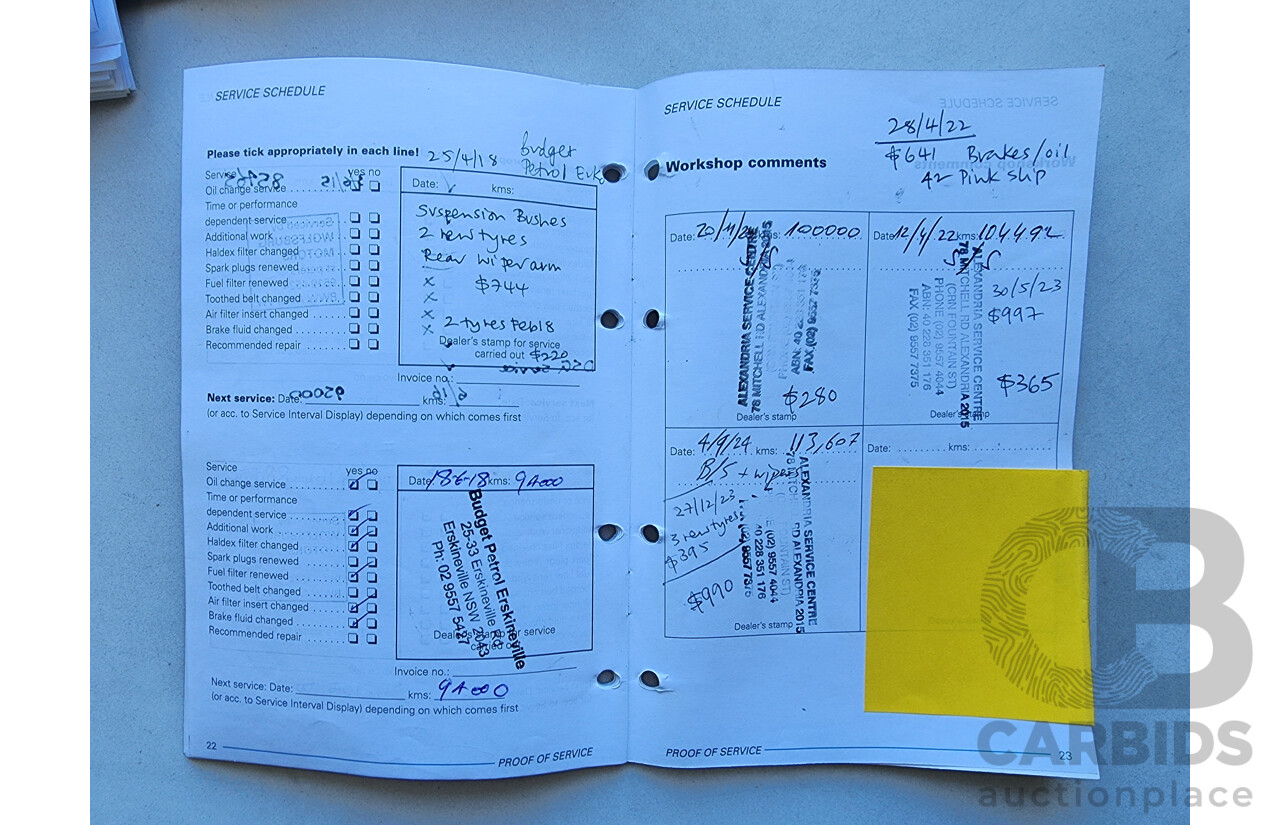 SERVICE SCHEDULE
Please tick appropriately in each line!
25/4/18
Budget
Petrol
Service
yes no
Oil change service
Time or performance
dependent service
Additional work
Haldex filter changed
Spark plugs renewed
Fuel filter renewed
Toothed belt changed
Air filter insert changed
Brake fluid changed
Recommended repair
Date: kms:
Suspension Bushes
2 new tyres
Rear wiper arm
x $744
x
x
x 2 tyres Feb18
Dealer's stamp for service
carried out $220
Invoice no.:
Next service: Date: kms:
(or acc. to Service Interval Display) depending on which comes first
Service
yes no
Oil change service
Time or performance
dependent service
Additional work
Haldex filter changed
Spark plugs renewed
Fuel filter renewed
Toothed belt changed
Air filter insert changed
Brake fluid changed
Recommended repair
Date 18-6-18 kms:
Budget Petrol Erskineville
25-33 Erskineville Rd
Erskineville NSW 2043
Ph: 02 9557 5427
Dealer's stamp for service
carried out
Invoice no.:
Next service: Date: kms:
(or acc. to Service Interval Display) depending on which comes first
22
PROOF OF SERVICE
SERVICE SCHEDULE
28/4/22
$641 Brakes/oil
42 Pink slip
Workshop comments
Date: kms: 100000
ALEXANDRIA SERVICE CENTRE
78 MITCHELL RD ALEXANDRIA 2015
$280
Dealer's stamp
Date: 12/4/22 kms: 104492
ALEXANDRIA SERVICE CENTRE
78 MITCHELL RD ALEXANDRIA 2015
(CRN FOUNTAIN ST)
PHONE (02) 9557 4044
ABN: 40 228 351 176
FAX (02) 9557 7375
30/5/23
$997
$365
Dealer's stamp
Date: 4/9/24 kms: 113,607
B/S + wipers
27/12/23
3 new tyres
$395
$990
ALEXANDRIA SERVICE CENTRE
78 MITCHELL RD ALEXANDRIA 2015
(02) 9557 4044
40 228 351 176
(02) 9557 7375
Dealer's stamp
Date: kms:
PROOF OF SERVICE
23
CARBIDS
auctionplace